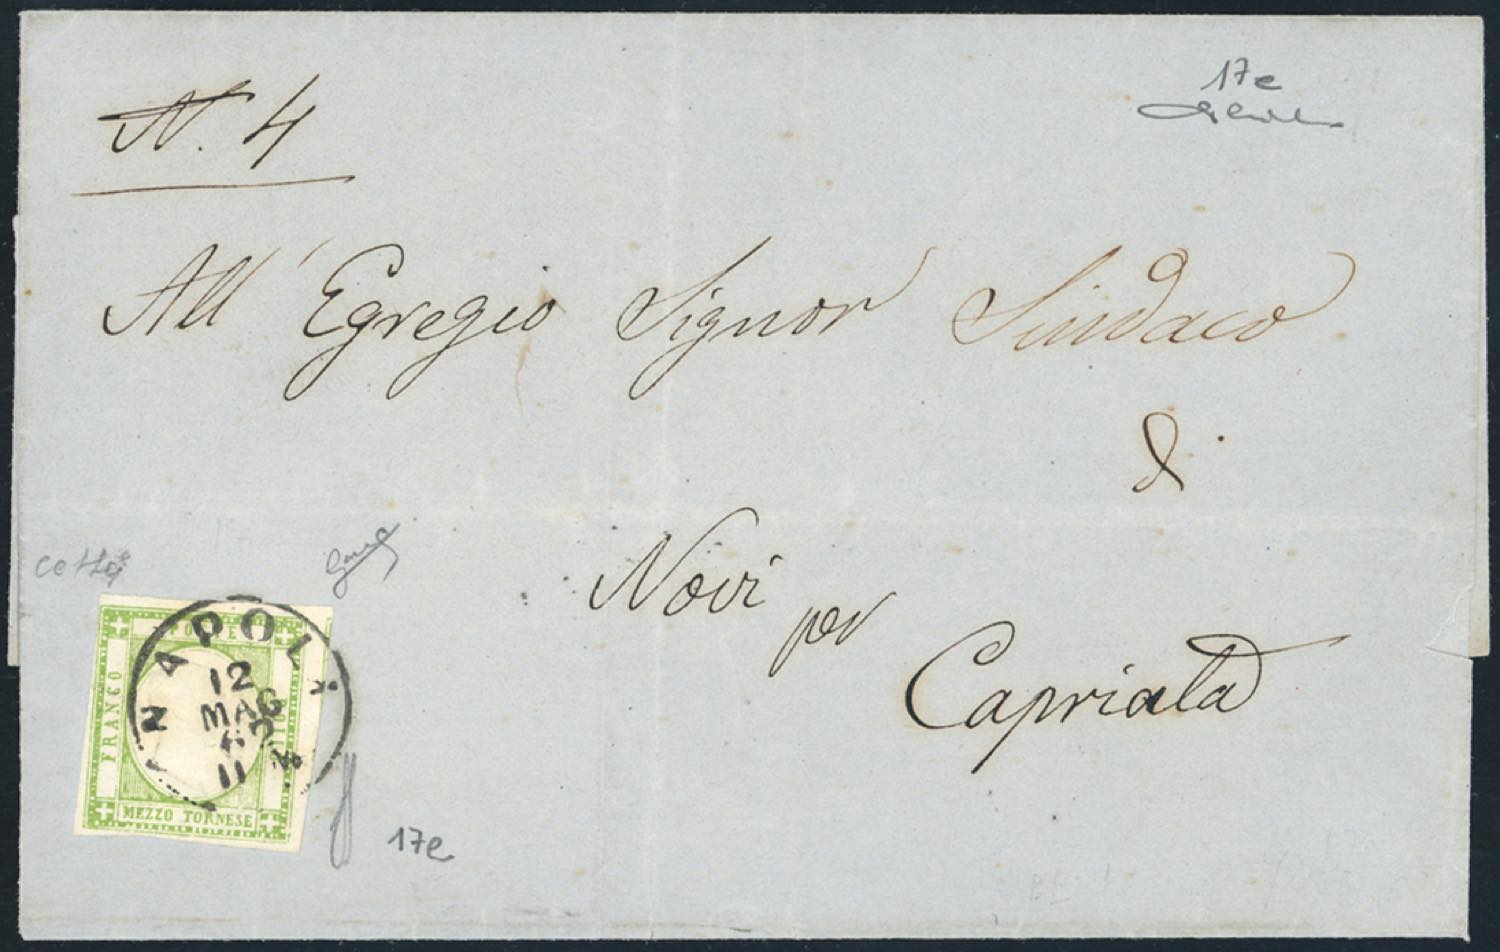 N. 4
17e
All' Egregio Signor Sindaco
di
Novi per
Capriata
NAPOLI
12
MAG
11
POSTE
FRANCO
BOLLO
MEZZO TORNESE
17e